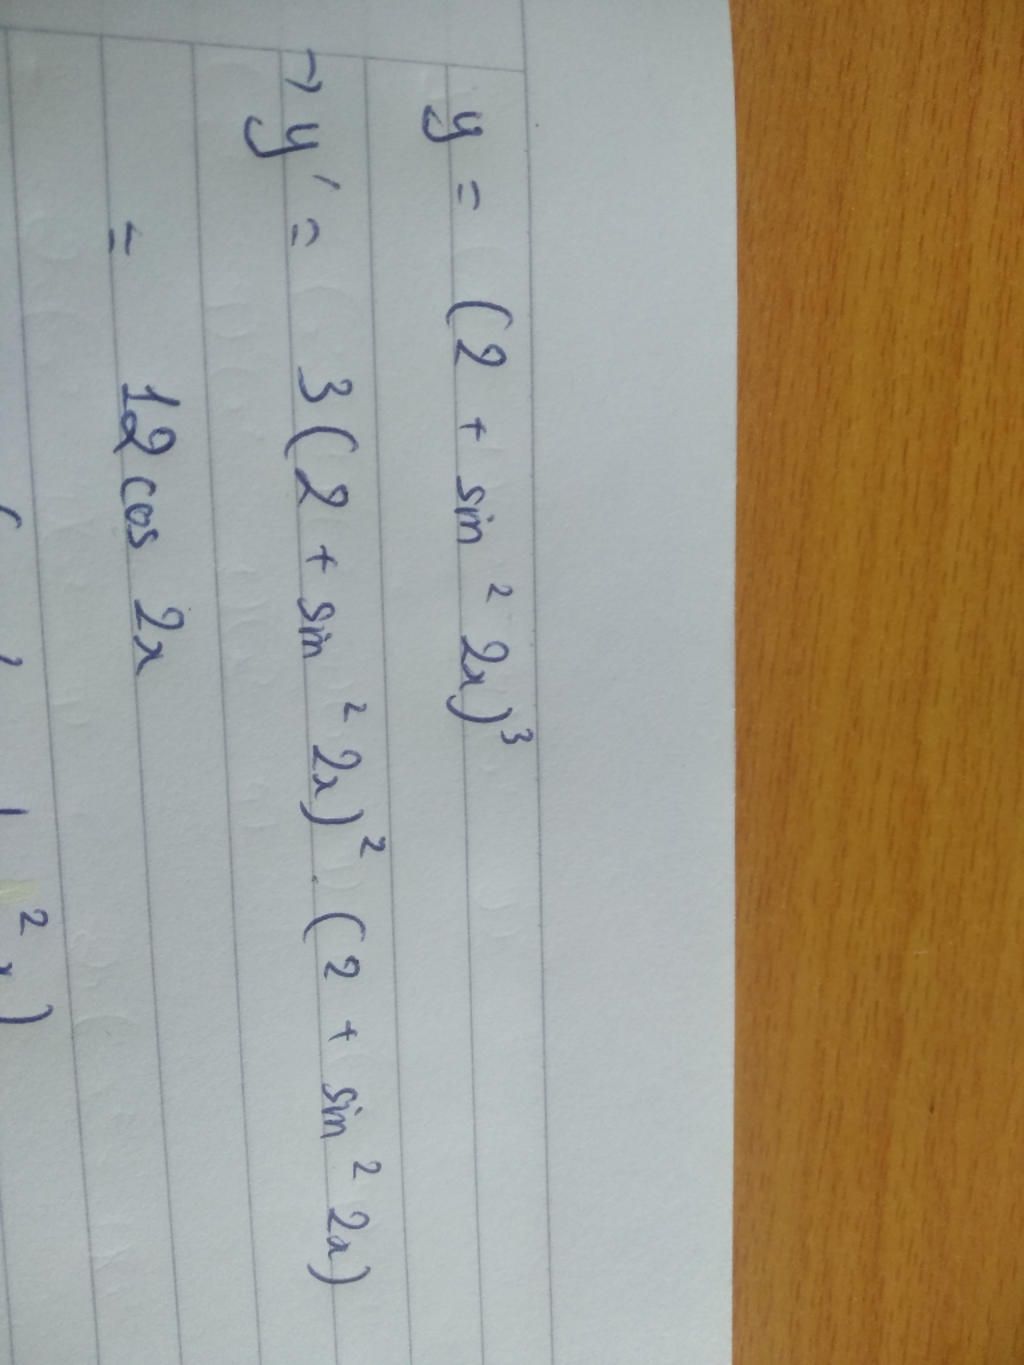 y = (2 + sin² 2x)³
→ y' = 3(2 + sin² 2x)² . (2 + sin² 2x)
= 12 cos 2x